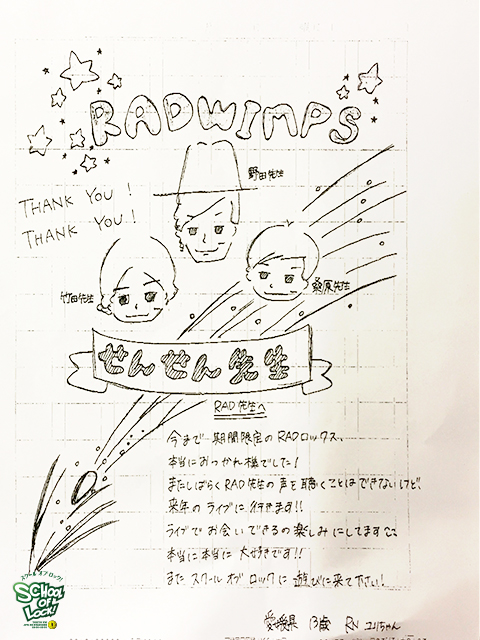 RADWIMPS
野田先生
THANK YOU!
THANK YOU!
竹田先生
桑原先生
ぜんぜん先生
RAD先生へ
今まで期間限定のRADロックス、
本当におつかれ様でした!
またしばらくRAD先生の声を聴くことはできないけど、
来年のライブに行きます!!
ライブでお会いできるの楽しみにしてます
本当に本当に大好きです!!
またスクールオブロックに遊びに来て下さい!
愛媛県 13歳 RN ユリちゃん
スクールオブロック!
SCHOOL
OF
LOCK!